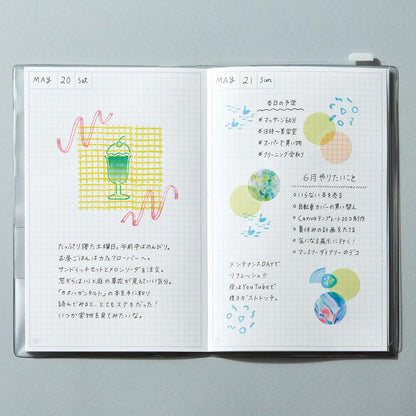 MAY 20 Sat
たっぷり寝た土曜日。午前中はのんびり。
お昼ごはんはカフェクローバーへ。
サンドイッチセットとメロンソーダを注文。
窓からは川と庭の草花が見えていい気分。
「カオハガンキルト」の本を手に取り
読んでみると、とてもステキだった!
いつか実物を見てみたいな。
MAY 21 Sun
本日の予定
マッサージ60分
13時〜美容室
スーパーで買い物
クリーニング受取り
6月やりたいこと
いらない本を売る
自転車カバーの買い替え
Canvaテンプレート20コ制作
夏休みの計画をたてる
気になる展示に行く!
マンスリーダイアリーのデコ
メンテナンスDAYで
リフレッシュ!!
夜はYouTubeで
腰ヨガストレッチ。